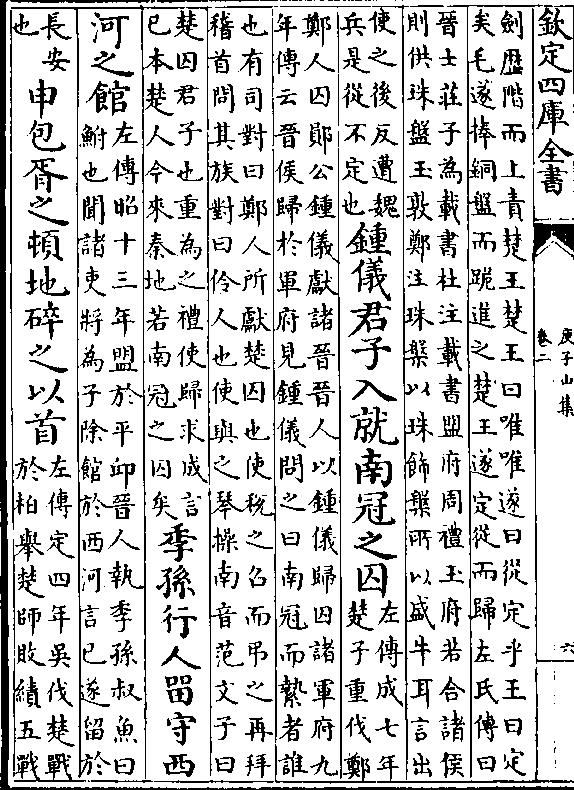 欽定四庫全書
庾子山集
卷二
六
劍歷階而上責楚王楚王曰唯唯遂曰從定乎王曰定
矣毛遂捧銅盤而跪進之楚王遂定從而歸左氏傳曰
晉士莊子為載書杜注載書盟府周禮玉府若合諸侯
則供珠盤玉敦鄭注珠槃以珠飾槃所以盛牛耳言出
使之後反遭魏
兵是從不定也
鍾儀君子入就南冠之囚
左傳成七年
楚子重伐鄭
鄭人囚鄖公鍾儀獻諸晉晉人以鍾儀歸囚諸軍府九
年傳云晉侯歸於軍府見鍾儀問之曰南冠而縶者誰
也有司對曰鄭人所獻楚囚也使稅之召而弔之再拜
稽首問其族對曰伶人也使與之琴操南音范文子曰
楚囚君子也重為之禮使歸求成言
已本楚人今來秦地若南冠之囚矣
季孫行人留守西
河之館
左傳昭十三年盟於平邱晉人執季孫叔魚曰
鮒也聞諸吏將為子除館於西河言已遂留於
長安
也
申包胥之頓地碎之以首
左傳定四年吳伐楚戰
於柏舉楚師敗績五戰